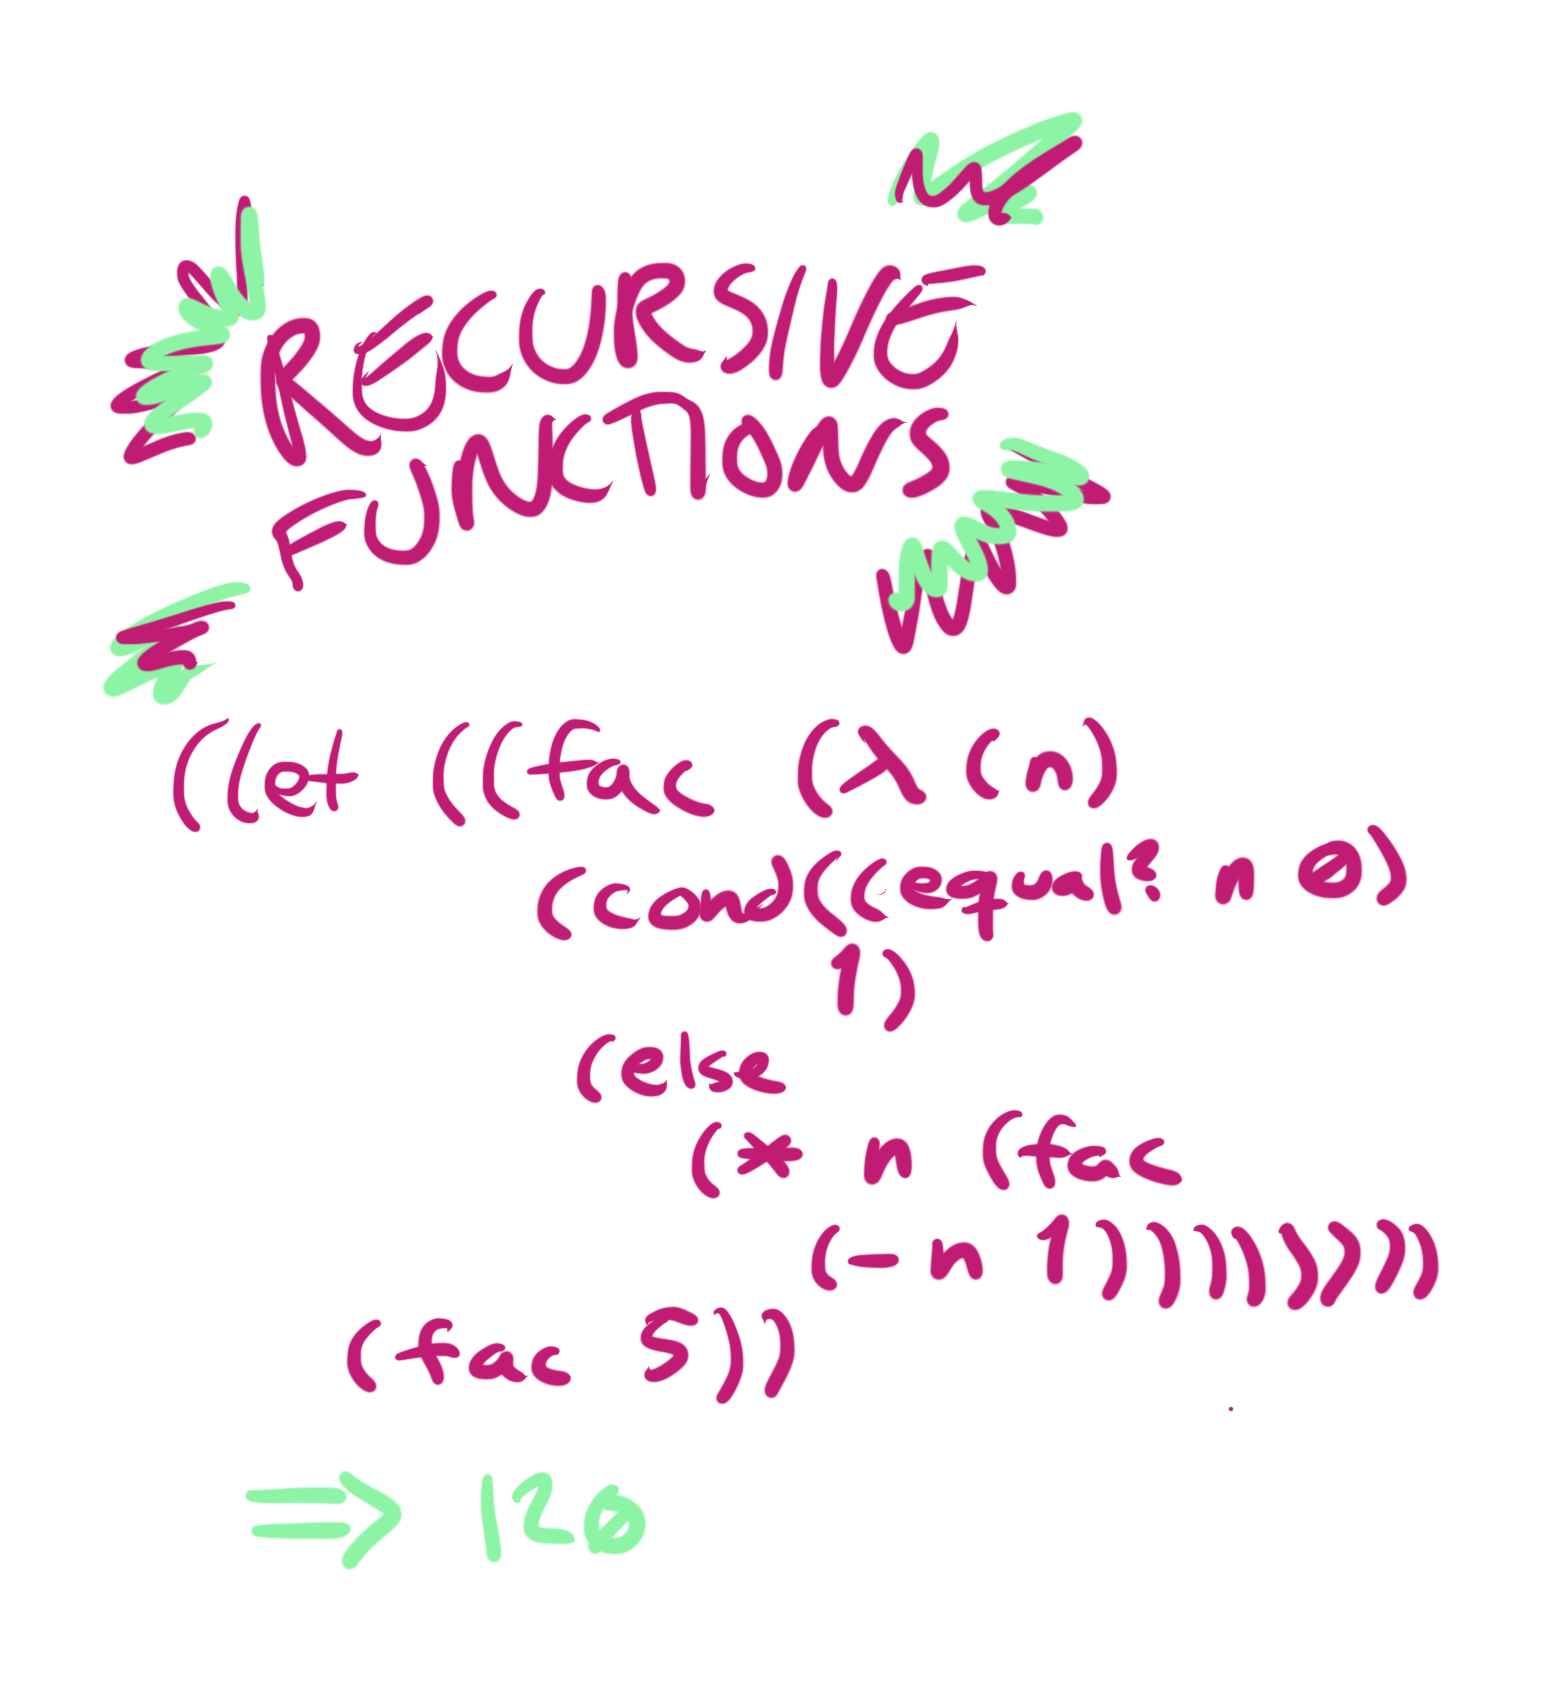 RECURSIVE
FUNCTIONS
(let ((fac (λ (n)
(cond((equal? n 0)
1)
(else
(* n (fac
(- n 1))))))))
(fac 5))
⇒ 120